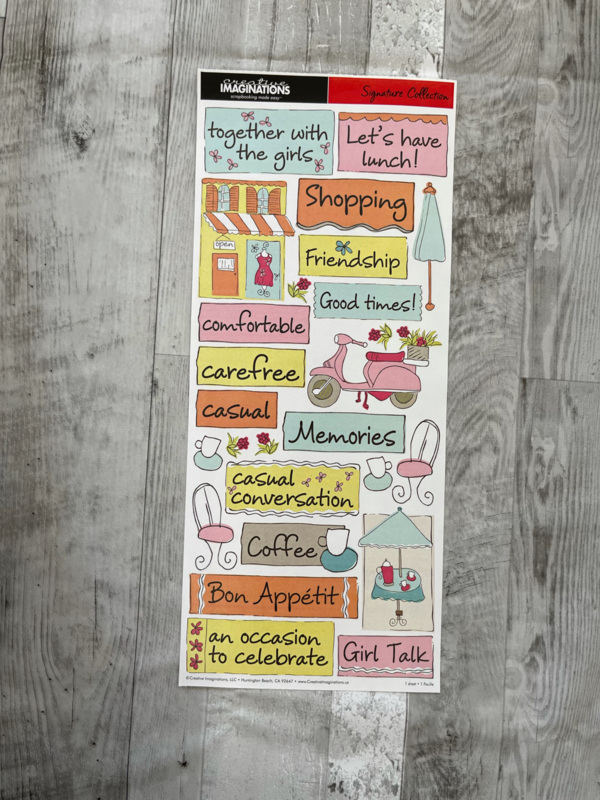 creative
IMAGINATIONS
scrapbooking made easy™
Signature Collection
together with
the girls
Let's have
lunch!
Shopping
open
Friendship
Good times!
comfortable
carefree
casual
Memories
casual
conversation
Coffee
Bon Appétit
an occasion
to celebrate
Girl Talk
© Creative Imaginations, LLC • Huntington Beach, CA 92647 • www.CreativeImaginations.us